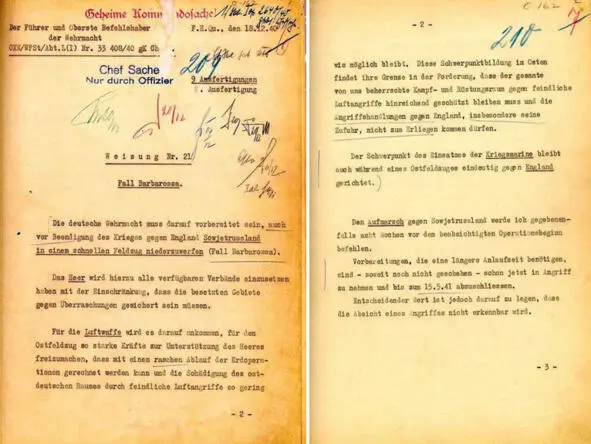 Geheime Kommandosache!
Der Führer und Oberste Befehlshaber
der Wehrmacht
OKW/WFSt/Abt.L(I) Nr. 33 408/40 gK Ch.
F.H.Qu., den 18.12.40
Chef Sache
Nur durch Offizier
209
9 Ausfertigungen
2. Ausfertigung
Weisung Nr. 21
Fall Barbarossa.
Die deutsche Wehrmacht muss darauf vorbereitet sein, auch
vor Beendigung des Krieges gegen England Sowjetrussland
in einem schnellen Feldzug niederzuwerfen (Fall Barbarossa).
Das Heer wird hierzu alle verfügbaren Verbände einzusetzen
haben mit der Einschränkung, dass die besetzten Gebiete
gegen Überraschungen gesichert sein müssen.
Für die Luftwaffe wird es darauf ankommen, für den
Ostfeldzug so starke Kräfte zur Unterstützung des Heeres
freizumachen, dass mit einem raschen Ablauf der Erdopera-
tionen gerechnet werden kann und die Schädigung des ost-
deutschen Raumes durch feindliche Luftangriffe so gering
- 2 -
- 2 -
210
wie möglich bleibt. Diese Schwerpunktbildung im Osten
findet ihre Grenze in der Forderung, dass der gesamte
von uns beherrschte Kampf- und Rüstungsraum gegen feindliche
Luftangriffe hinreichend geschützt bleiben muss und die
Angriffshandlungen gegen England, insbesondere seine
Zufuhr, nicht zum Erliegen kommen dürfen.
Der Schwerpunkt des Einsatzes der Kriegsmarine bleibt
auch während eines Ostfeldzuges eindeutig gegen England
gerichtet.
Den Aufmarsch gegen Sowjetrussland werde ich gegebenen-
falls acht Wochen vor dem beabsichtigten Operationsbeginn
befehlen.
Vorbereitungen, die eine längere Anlaufzeit benötigen,
sind - soweit noch nicht geschehen - schon jetzt in Angriff
zu nehmen und bis zum 15.5.41 abzuschliessen.
Entscheidender Wert ist jedoch darauf zu legen, dass
die Absicht eines Angriffes nicht erkennbar wird.
- 3 -